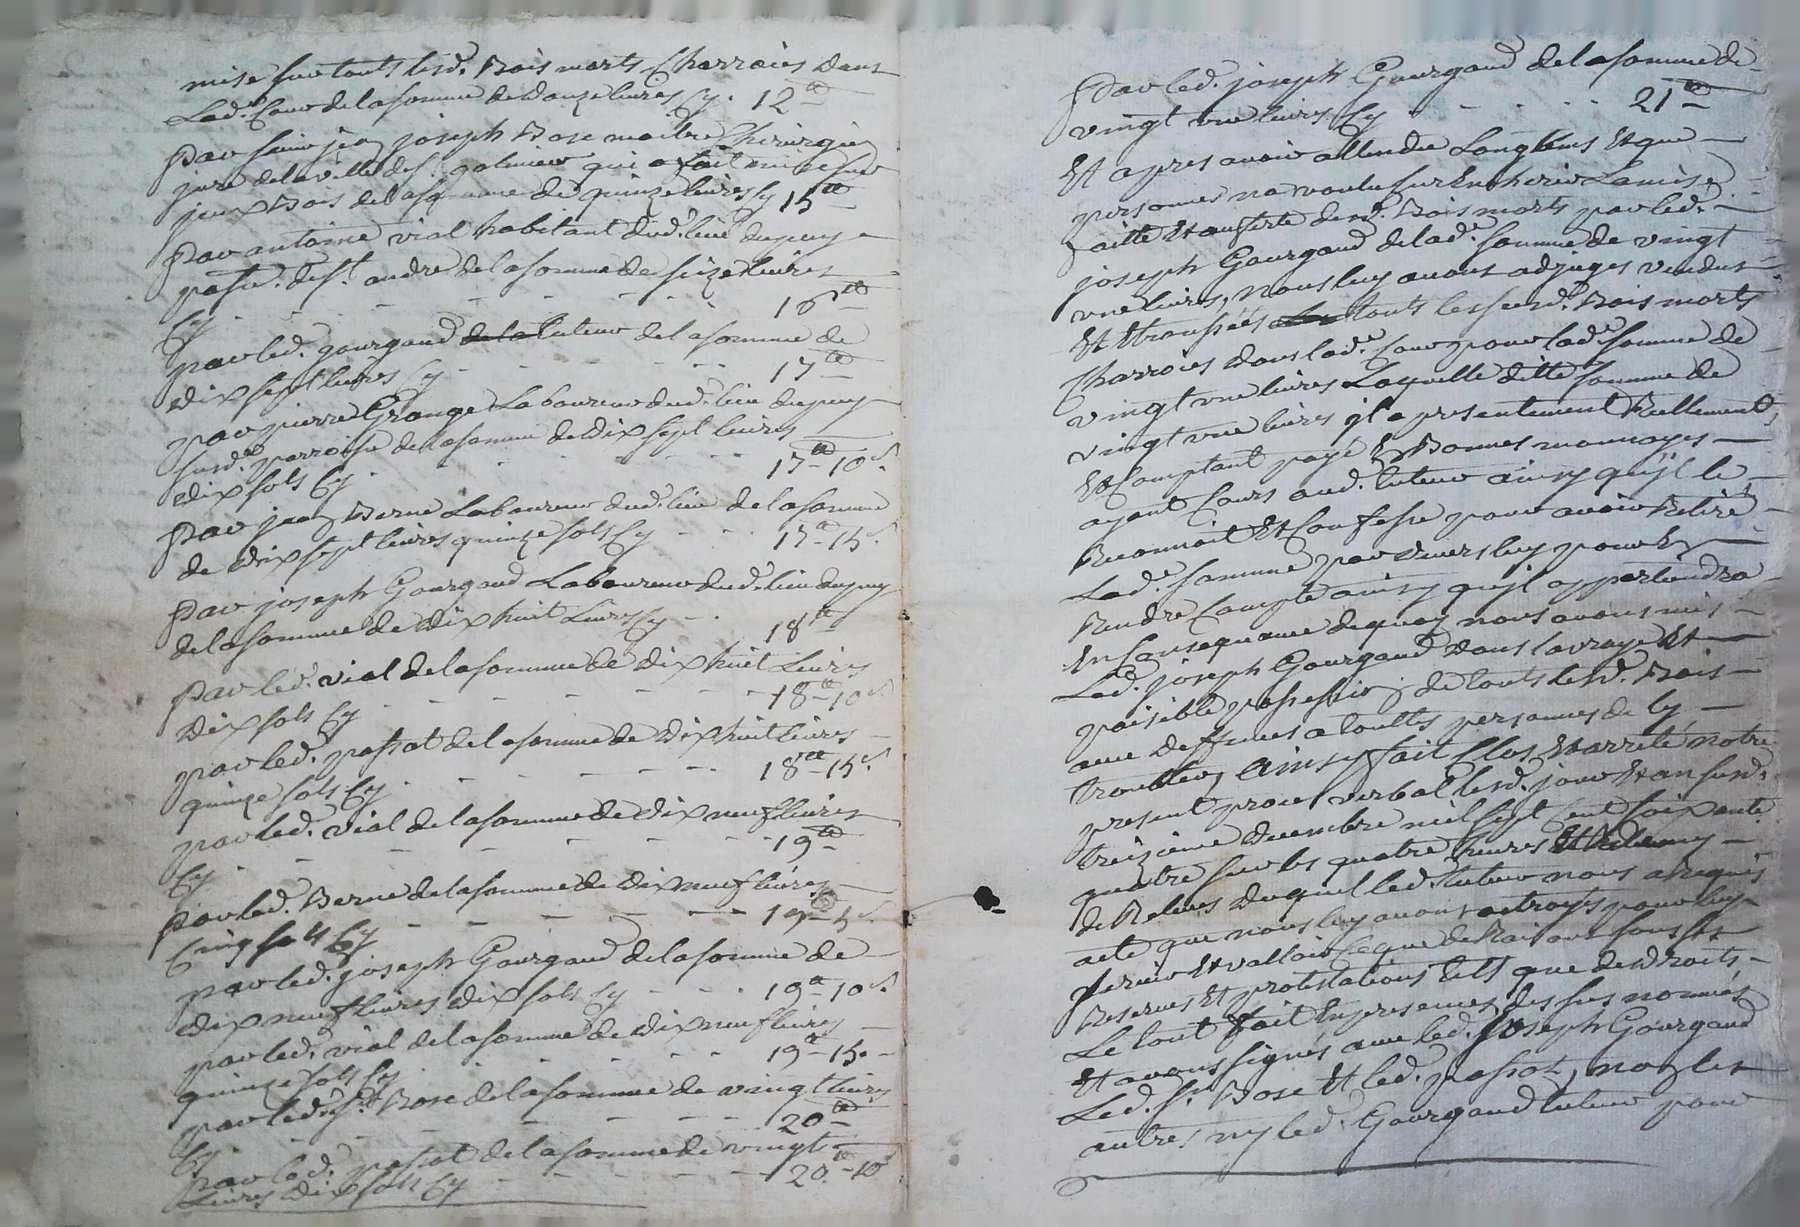 mise sur touts lesd. Bois morts Charroies dans
Lad.e Cour de la somme de douze livres Cy. 12 lt
Par sieur jean joseph Bose maître Chirurgien
juré de la ville de s.t galmier qui a fait mise sur
jeux Bois de la somme de quinze livres Cy 15 lt
Par antoine vial habitant dud. lieu dupuy
passe. de s.t andre de la somme de seize livres
Cy - - - - - - - 16 lt
par led. gourgaud de la tuteur de la somme de
dix sept livres Cy - - - - - - 17 lt
par pierre Grange Laboureur dud. lieu dupuy
susd.e parroisse de la somme de dix sept livres
dix sols Cy - - - - - - 17 lt - 10 s.
Par jean Berne Laboureur dud. lieu de la somme
de dix sept livres quinze sols Cy - - - 17 lt - 15 s.
Par joseph Gourgaud Laboureur dud. lieu dupuy
de la somme de dix huit Livres Cy - - 18 lt
Par led. vial de la somme de dix huit Livres
Dix sols Cy - - - - - - 18 lt - 10 s.
par led. passot de la somme de dix huit livres
quinze sols Cy - - - - - - 18 lt - 15 s.
par led. vial de la somme de dix neuf livres
Cy - - - - - - 19 lt
Par led. Berne de la somme de dix neuf livres
Cinq sols Cy - - - - - - 19 - 5 s.
par led. joseph Gourgaud de la somme de
dix neuf livres dix sols Cy - - - 19 lt - 10 s.
par led. vial de la somme de dix neuf livres
quinze sols Cy - - - - - 19 lt - 15. -
par led. s.r Bose de la somme de vingt livres
Cy. - - - - - - 20 lt
par led. passot de la somme de vingt
Livres dix sols Cy - - - - - 20 lt - 10 s
Par led. joseph Gourgaud de la somme de
vingt une livres Cy - - - - - 21 lt
Et apres avoir attendu Longtems Et que
personnes na voulu surEncherir La mise
faitte Et offerte desd. Bois morts par led.
joseph Gourgaud de lad.e somme de vingt
une livres, nous luy avons adjuges vendus
Et Etroussés touts les susd. Bois morts
Charroies dans lad.e Cour pour lad.e somme de
vingt une livres Laquelle ditte somme de
vingt une livres il a presentement Reellement
Et Comptant payé En Bonnes monnoyes
ayant Cours aud. tuteur ainsy qu'jl le
Reconnoit Et Confesse pour avoir Retiré
Lad.e somme par devers luy pour En
Rendre Compte ainsy qu'jl appartiendra
En Consequance de quoy nous avons mis
Led. joseph Gourgaud dans la vraye Et
paisible possession de touts lesd. Bois
avec deffences a touttes personnes de ly
troubler, Ainsy fait Clos Et arrete notre
present proces verbal lesd. jour Et an susd.
treizieme decembre mil sept Cent soixante
quatre sur les quatre heures Et demy
de Relevé duquel led. tuteur nous a requis
acte que nous luy avons octroyé pour luy
servir Et valloir Ce que de Raison sous ses
Reserves Et protestations tels que de droits
Le tout fait En presences des sus nommés
Et avons signés avec led. Joseph Gourgaud
Led. s.r Bose Et led. passot, non les
autres ny led. Gourgaud tuteur pour